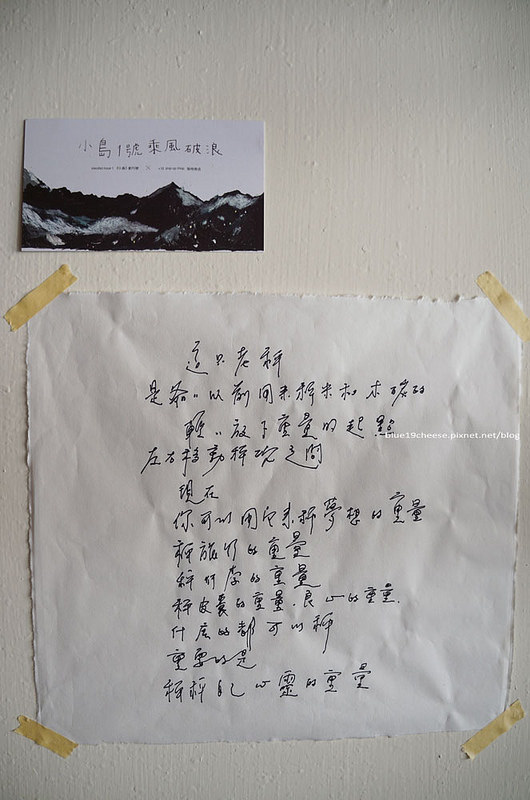 小島1號乘風破浪
blue19cheese.pixnet.net/blog
這只老秤
是爺爺以前用來秤米和木碳的
輕輕放下重量的起點
左右移動秤砣之間
現在
你可以用它來秤夢想的重量
秤旅行的重量
秤行李的重量
秤皮囊的重量.良心的重量.
什麼的都可以秤
重要的是
秤秤自己心靈的重量